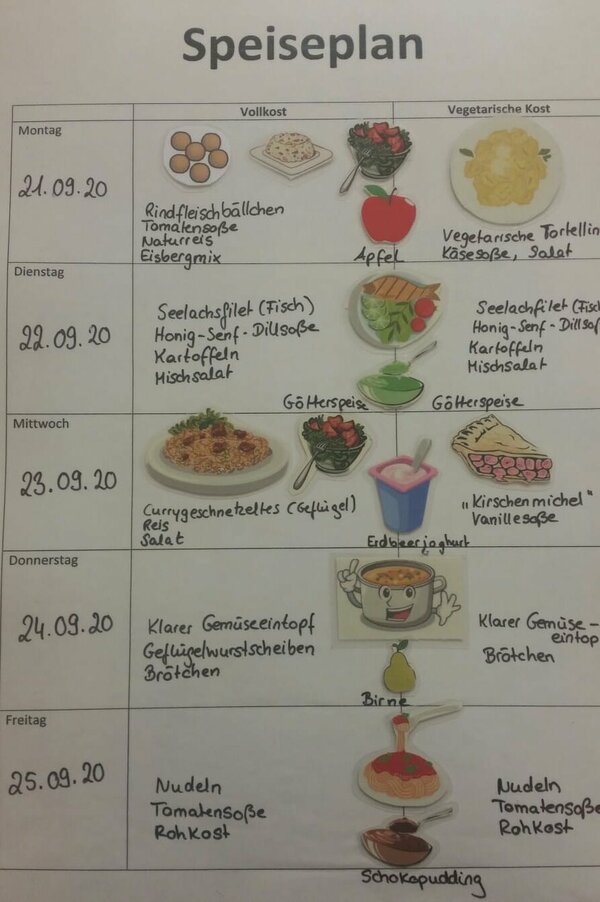 Speiseplan
Vollkost
Vegetarische Kost
Montag
21.09.20
Rindfleischbällchen
Tomatensoße
Naturreis
Eisbergmix
Apfel
Vegetarische Tortellin
Käsesoße, Salat
Dienstag
22.09.20
Seelachsfilet (Fisch)
Honig-Senf-Dillsoße
Kartoffeln
Mischsalat
Götterspeise
Seelachfilet (Fisc
Honig-Senf-Dillsoß
Kartoffeln
Mischsalat
Götterspeise
Mittwoch
23.09.20
Currygeschnetzeltes (Geflügel)
Reis
Salat
Erdbeerjoghurt
"Kirschenmichel"
Vanillesoße
Donnerstag
24.09.20
Klarer Gemüseeintopf
Geflügelwurstscheiben
Brötchen
Birne
Klarer Gemüse-
eintop
Brötchen
Freitag
25.09.20
Nudeln
Tomatensoße
Rohkost
Schokopudding
Nudeln
Tomatensoße
Rohkost